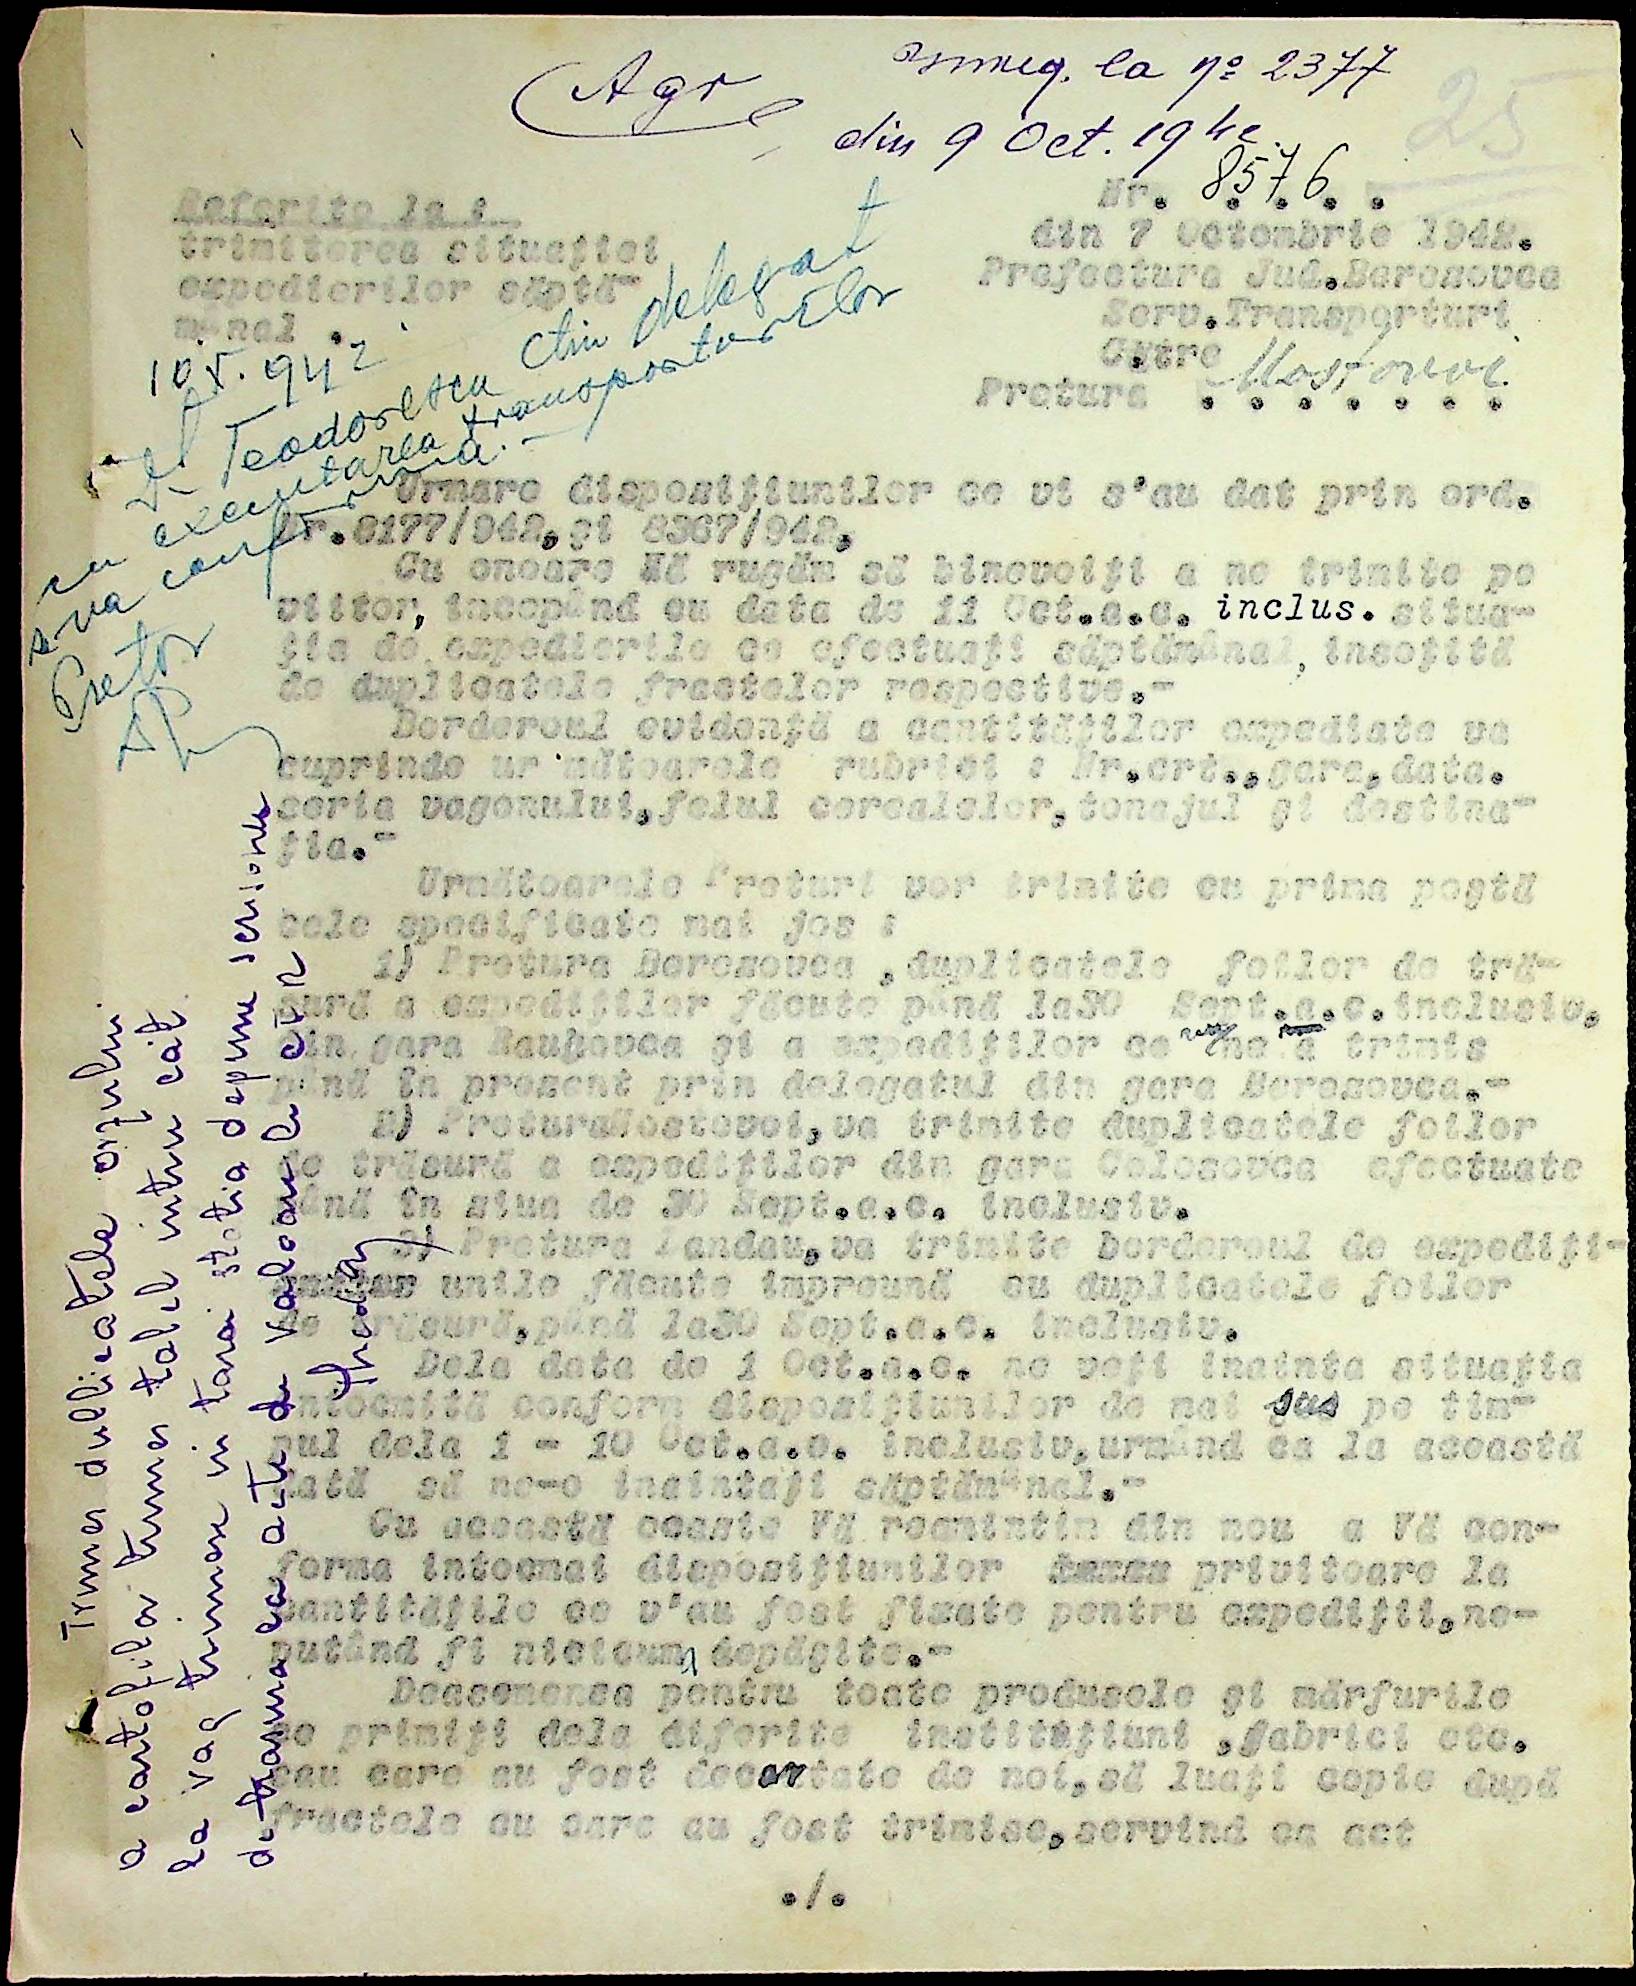 Agr
la nº 2377
din 9 Oct. 194
25
Nr. 8576 . .
din 7 Octombrie 1942.
Prefectura Jud.Berezovca
Serv.Transporturi
Către
Pretura Mostovoi
Referito la :
trimiterea situaţiei
expedierilor săptă-
mânal .
10.X.942
Dl Teodorescu ctin delegat
cu executarea transporturilor
s-va conforma.-
Pretor
Urmare dispoziţiunilor ce vi s'au dat prin ord.
Nr.8177/942, şi 8367/942,
Cu onoare Vă rugăm să binevoiţi a ne trimite pe
viitor, începând cu data de 11 Oct.a.c. inclus. situa-
ţia de expedierile ce efectuaţi săptămânal, însoţită
de duplicatele fractelor respective.-
Borderoul evidenţă a cantităţilor expediate va
cuprinde ur mătoarele rubrici : Nr.crt.,gara,data.
seria vagonului,felul cerealelor,tonajul şi destina-
ţia.-
Următoarele Preturi vor trimite cu prima poştă
cele specificate mai jos :
1) Pretura Berezovca ,duplicatele foilor de tră-
sură a expediţiilor făcute până la30 Sept.a.c.inclusiv.
din gara Rauhovca şi a expediţiilor ce ne a trimis
până în prezent prin delegatul din gara Berezovca.-
2) PreturaMostovoi,va trimite duplicatele foilor
de trăsură a expediţiilor din gara Colosovca efectuate
până în ziua de 30 Sept.a.c. inclusiv.
3) Pretura Landau,va trimite borderoul de expediţi-
unile făcute împreună cu duplicatele foilor
de trăsură,până la30 Sept.a.c. inclusiv.
Dela data de 1 Oct.a.c. ne veţi înainta situaţia
întocmită conform dispoziţiunilor de mai sus pe tim-
pul dela 1 - 10 Oct.a.c. inclusiv,urmând ca la această
dată să ne-o înaintaţi săptămânal.-
Cu această ocazie Vă reamintim din nou a Vă con-
forma întocmai dispoziţiunilor privitoare la
cantităţile ce v'au fost fixate pentru expediţii,ne-
putând fi nicicum depăşite.-
Deasemenea pentru toate produsele şi mărfurile
ce primiţi dela diferite instituţiuni ,fabrici etc.
sau care au fost decartate de noi,să luaţi copie după
fractele cu care au fost trimise,servind ca act
./.
Trimes dublicatele orzului
a cartofilor trimes talil intru cât
la vag trimese in tara statia depune scrisorile
de trasura ca acte de valoare la